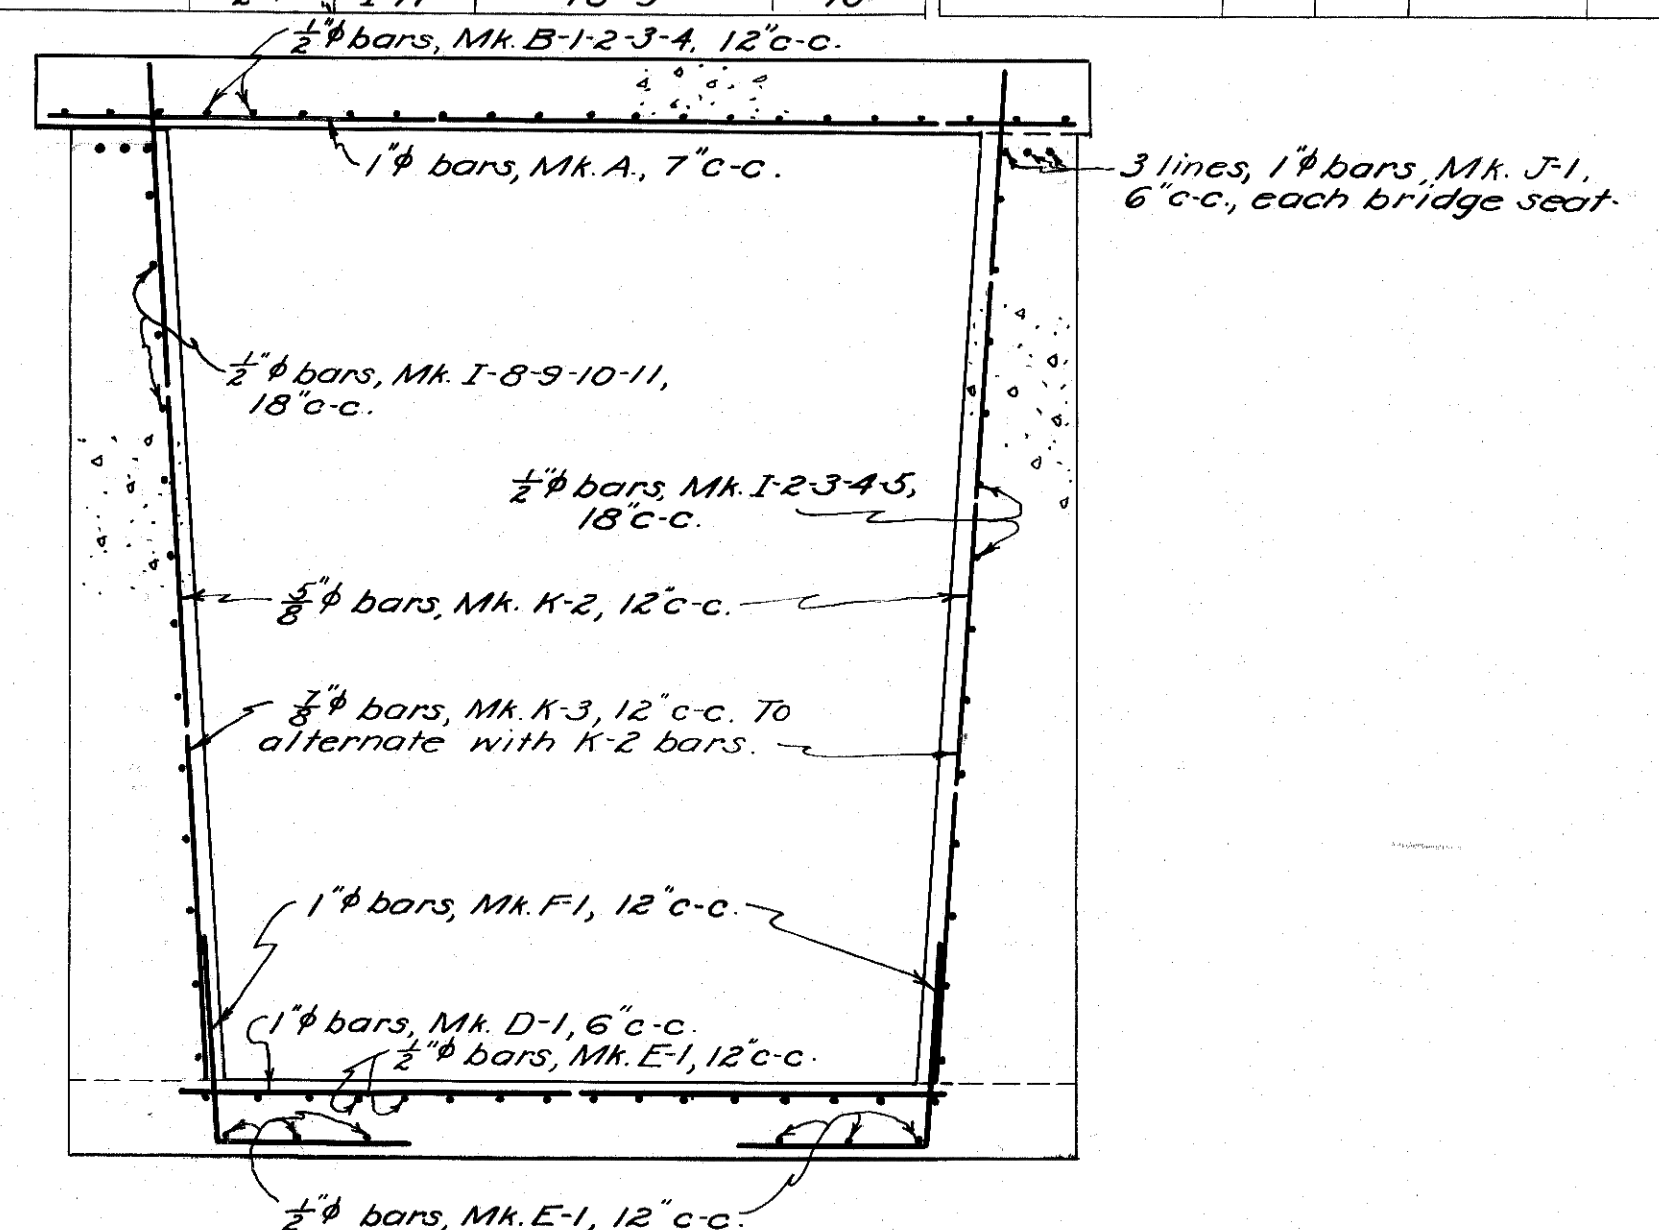 ½"φ bars, Mk. B-1-2-3-4, 12"c-c.
1"φ bars, Mk. A., 7"c-c.
3 lines, 1"φ bars, Mk. J-1,
6"c-c., each bridge seat.
½"φ bars, Mk. I-8-9-10-11,
18"c-c.
½"φ bars, Mk. I-2-3-4-5,
18"c-c.
⅝"φ bars, Mk. K-2, 12"c-c.
⅞"φ bars, Mk. K-3, 12"c-c. To
alternate with K-2 bars.
1"φ bars, Mk. F-1, 12"c-c.
1"φ bars, Mk. D-1, 6"c-c.
½"φ bars, Mk. E-1, 12"c-c.
½"φ bars, Mk. E-1, 12"c-c.